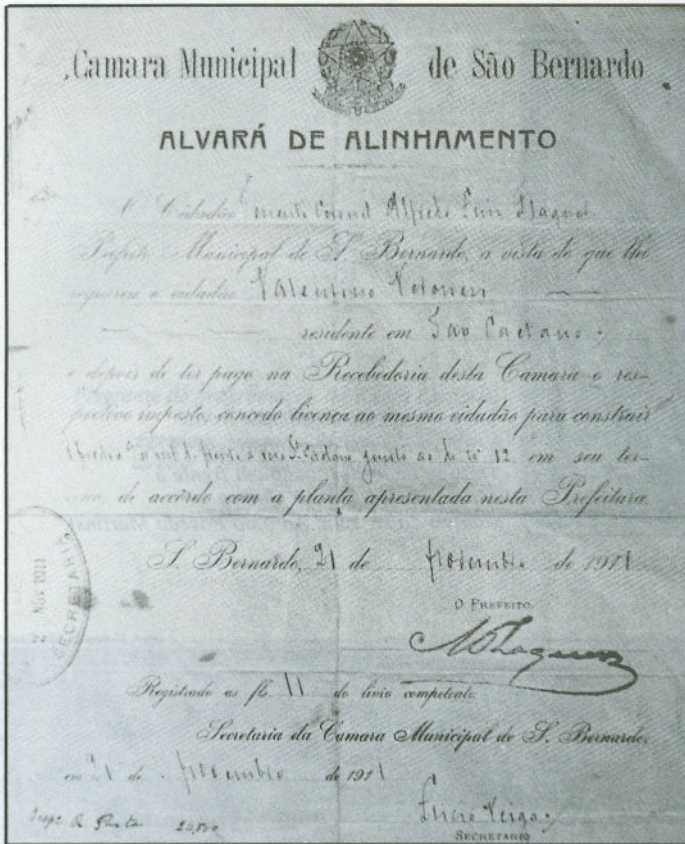 Camara Municipal de São Bernardo
ALVARÁ DE ALINHAMENTO
O Cidadão Tenente Coronel Alfredo Luiz Flaquer
Prefeito Municipal de S. Bernardo, á vista do que lhe
requereu o cidadão Valentino
residente em São Caetano
e depois de ter pago na Recebedoria desta Camara o res-
pectivo imposto, concedo licença ao mesmo cidadão para construir
frente á rua S. Caetano junto ao de nº 12 em seu ter-
reno, de accôrdo com a planta apresentada nesta Prefeitura.
S. Bernardo, 21 de Novembro de 1911
O PREFEITO,
Registrado as fls. 11 do livro competente
Secretaria da Camara Municipal de S. Bernardo,
em 21 de Novembro de 1911
SECRETARIO
NOV 1911
SECRETARIA